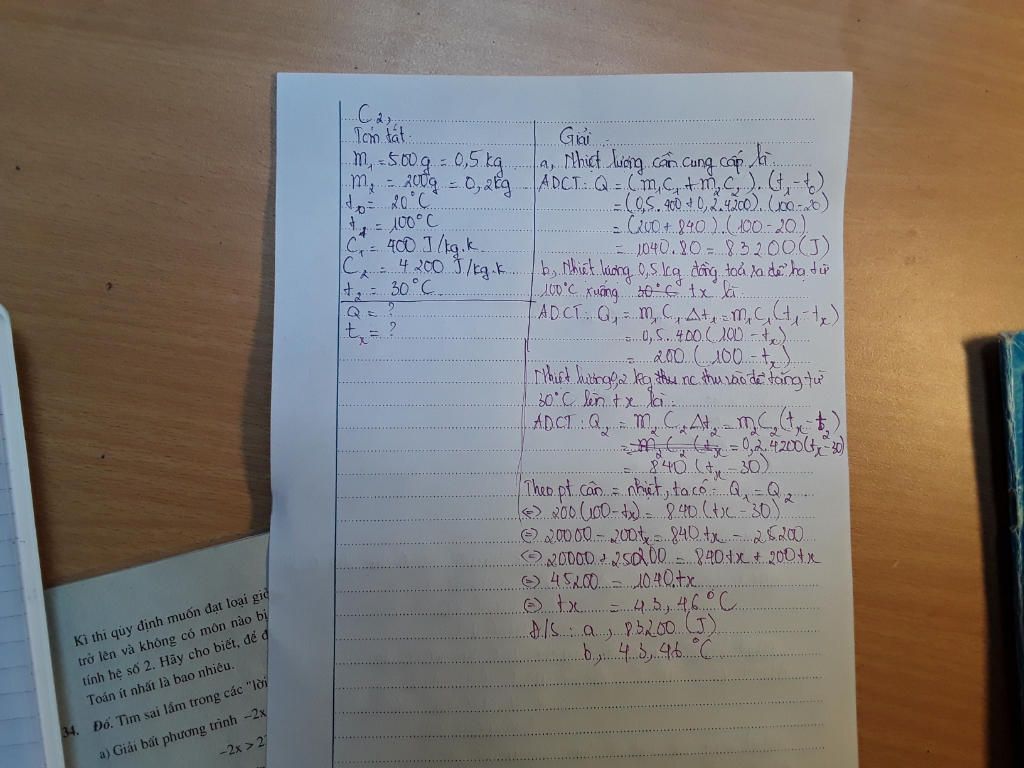 C2,
Tóm tắt.
m1 = 500g = 0,5 kg
m2 = 200g = 0,2kg
t0 = 20°C
t1 = 100°C
C1 = 400 J/kg.k
C2 = 4200 J/kg.k
t2 = 30°C
Q = ?
tx = ?
Giải :
a, Nhiệt lượng cần cung cấp là:
ADCT: Q = (m1C1 + m2C2).(t1 - t0)
= (0,5.400 + 0,2.4200).(100-20)
= (200 + 840).(100 - 20)
= 1040.80 = 83200 (J)
b, Nhiệt lượng 0,5kg đồng toả ra để hạ từ
100°C xuống 30°C tx là:
ADCT: Q1 = m1C1Δt1 = m1C1(t1 - tx)
= 0,5.400(100 - tx)
= 200 (100 - tx)
Nhiệt lượng 0,2 kg thu nc thu vào để tăng từ
30°C lên tx là:
ADCT: Q2 = m2C2Δt2 = m2C2(tx - t2)
= m2C2(tx = 0,2.4200(tx-30)
= 840.(tx - 30)
Theo pt cân = nhiệt, ta có: Q1 = Q2
<=> 200(100-tx) = 840(tx-30)
<=> 20000 - 200tx = 840tx - 25200
<=> 20000 + 250200 = 840tx + 200tx
<=> 45200 = 1040tx
<=> tx = 43,46°C
Đ/S: a, 83200 (J)
b, 43,46°C
Kì thi quy định muốn đạt loại giỏ
trở lên và không có môn nào bị
tính hệ số 2. Hãy cho biết, để đ
Toán ít nhất là bao nhiêu.
34. Đố. Tìm sai lầm trong các "lời
a) Giải bất phương trình -2x
-2x > 2